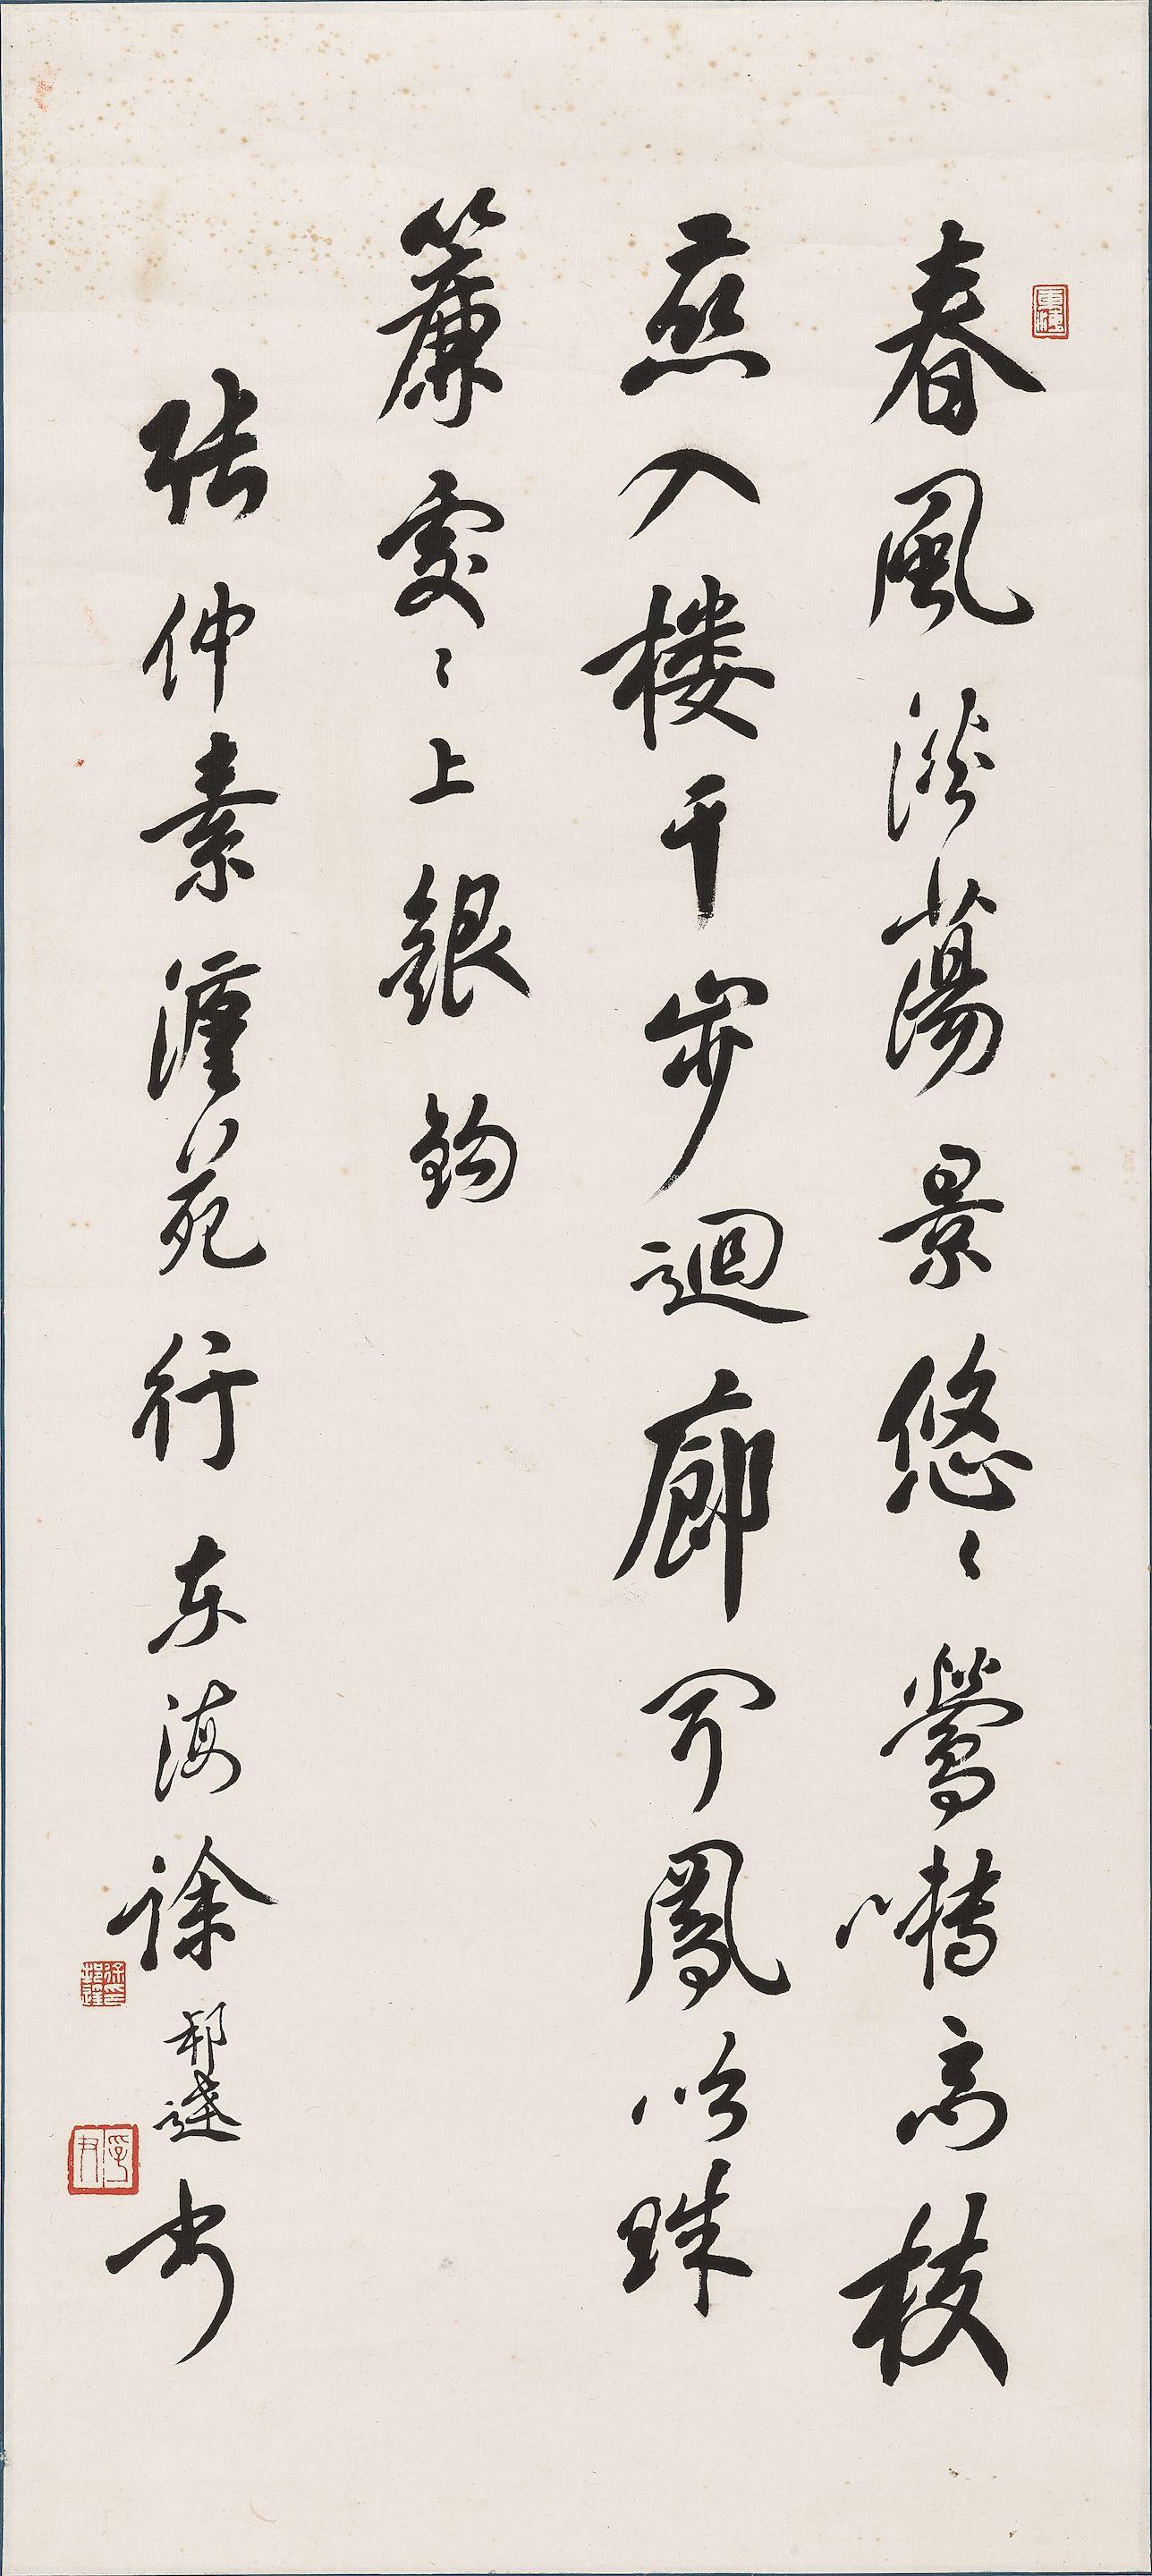 東海
春風淡蕩景悠〻鶯囀高枝
燕入楼千步迴廊聞鳳吹珠
簾處〻上銀鈎
張仲素漢苑行 东海徐邦達書